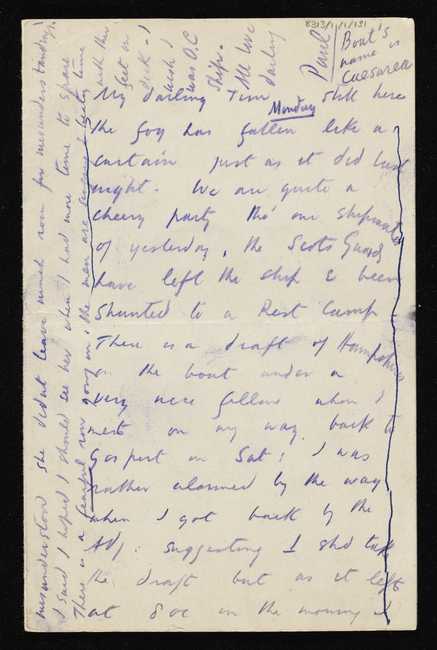 8313/1/1/131
Boat's
name is
Caesarea
My darling Tim
Monday
Still here
the fog has fallen like a
curtain just as it did last
night. We are quite a
cheery party tho' our shipmates
of yesterday, the Scots Guards
have left the ship & been
shunted to a Rest Camp
There is a draft of Hampshires
on the boat under a
very nice fellow whom I
met on my way back to
Gosport on Sat: I was
rather alarmed by the way
when I got back by the
Adj: suggesting I shd take
the draft but as it left
at 8 oc in the morning
misunderstood she didnt leave much room for misunderstanding!
I said I hoped I should see her when I had more time to spare
There is a fearful row going on, the men are
with their
feet on
deck - I
wish I
was O.C
Ship.
All love
darling
Paul